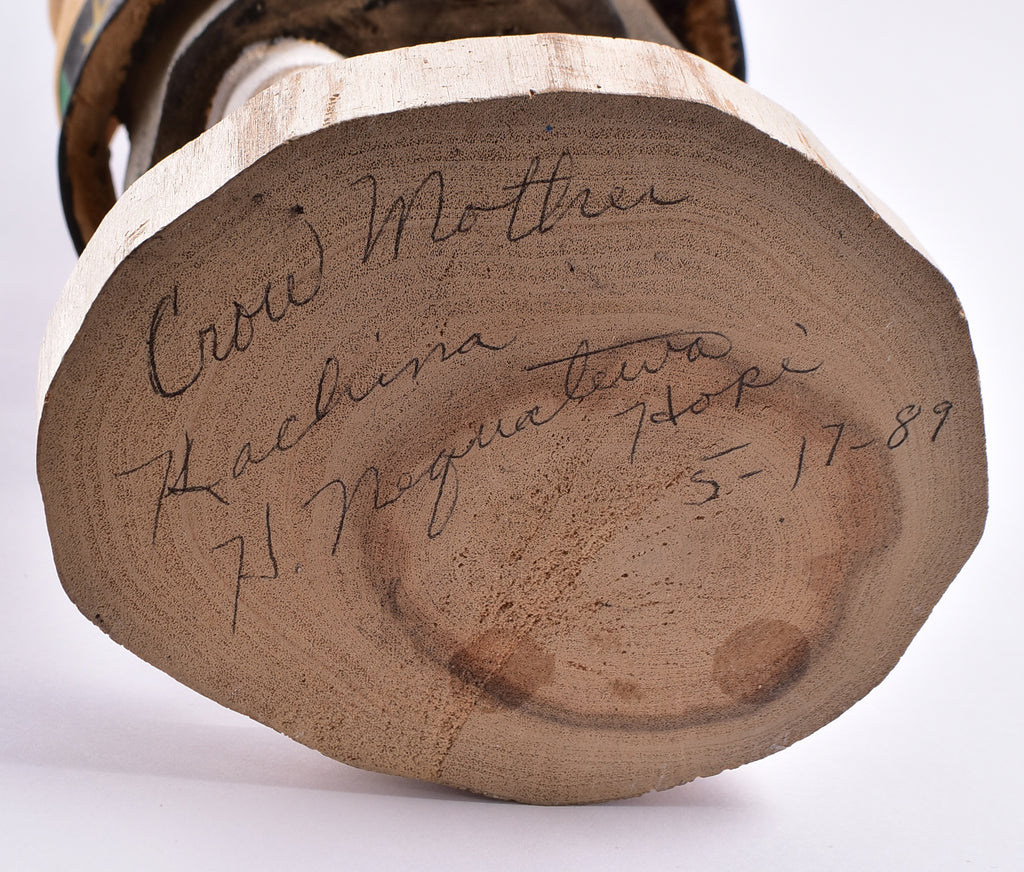 Crow Mother
Kachina
H. Nequatewa
Hopi
5-17-89